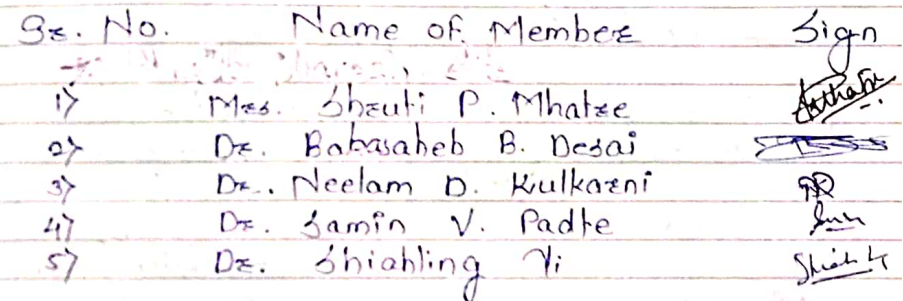 Sr. No. Name of Member Sign
1) Mrs. Shruti P. Mhatre
2) Dr. Babasaheb B. Desai
3) Dr. Neelam D. Kulkarni
4) Dr. Samin V. Padte
5) Dr. Shiahling Yi